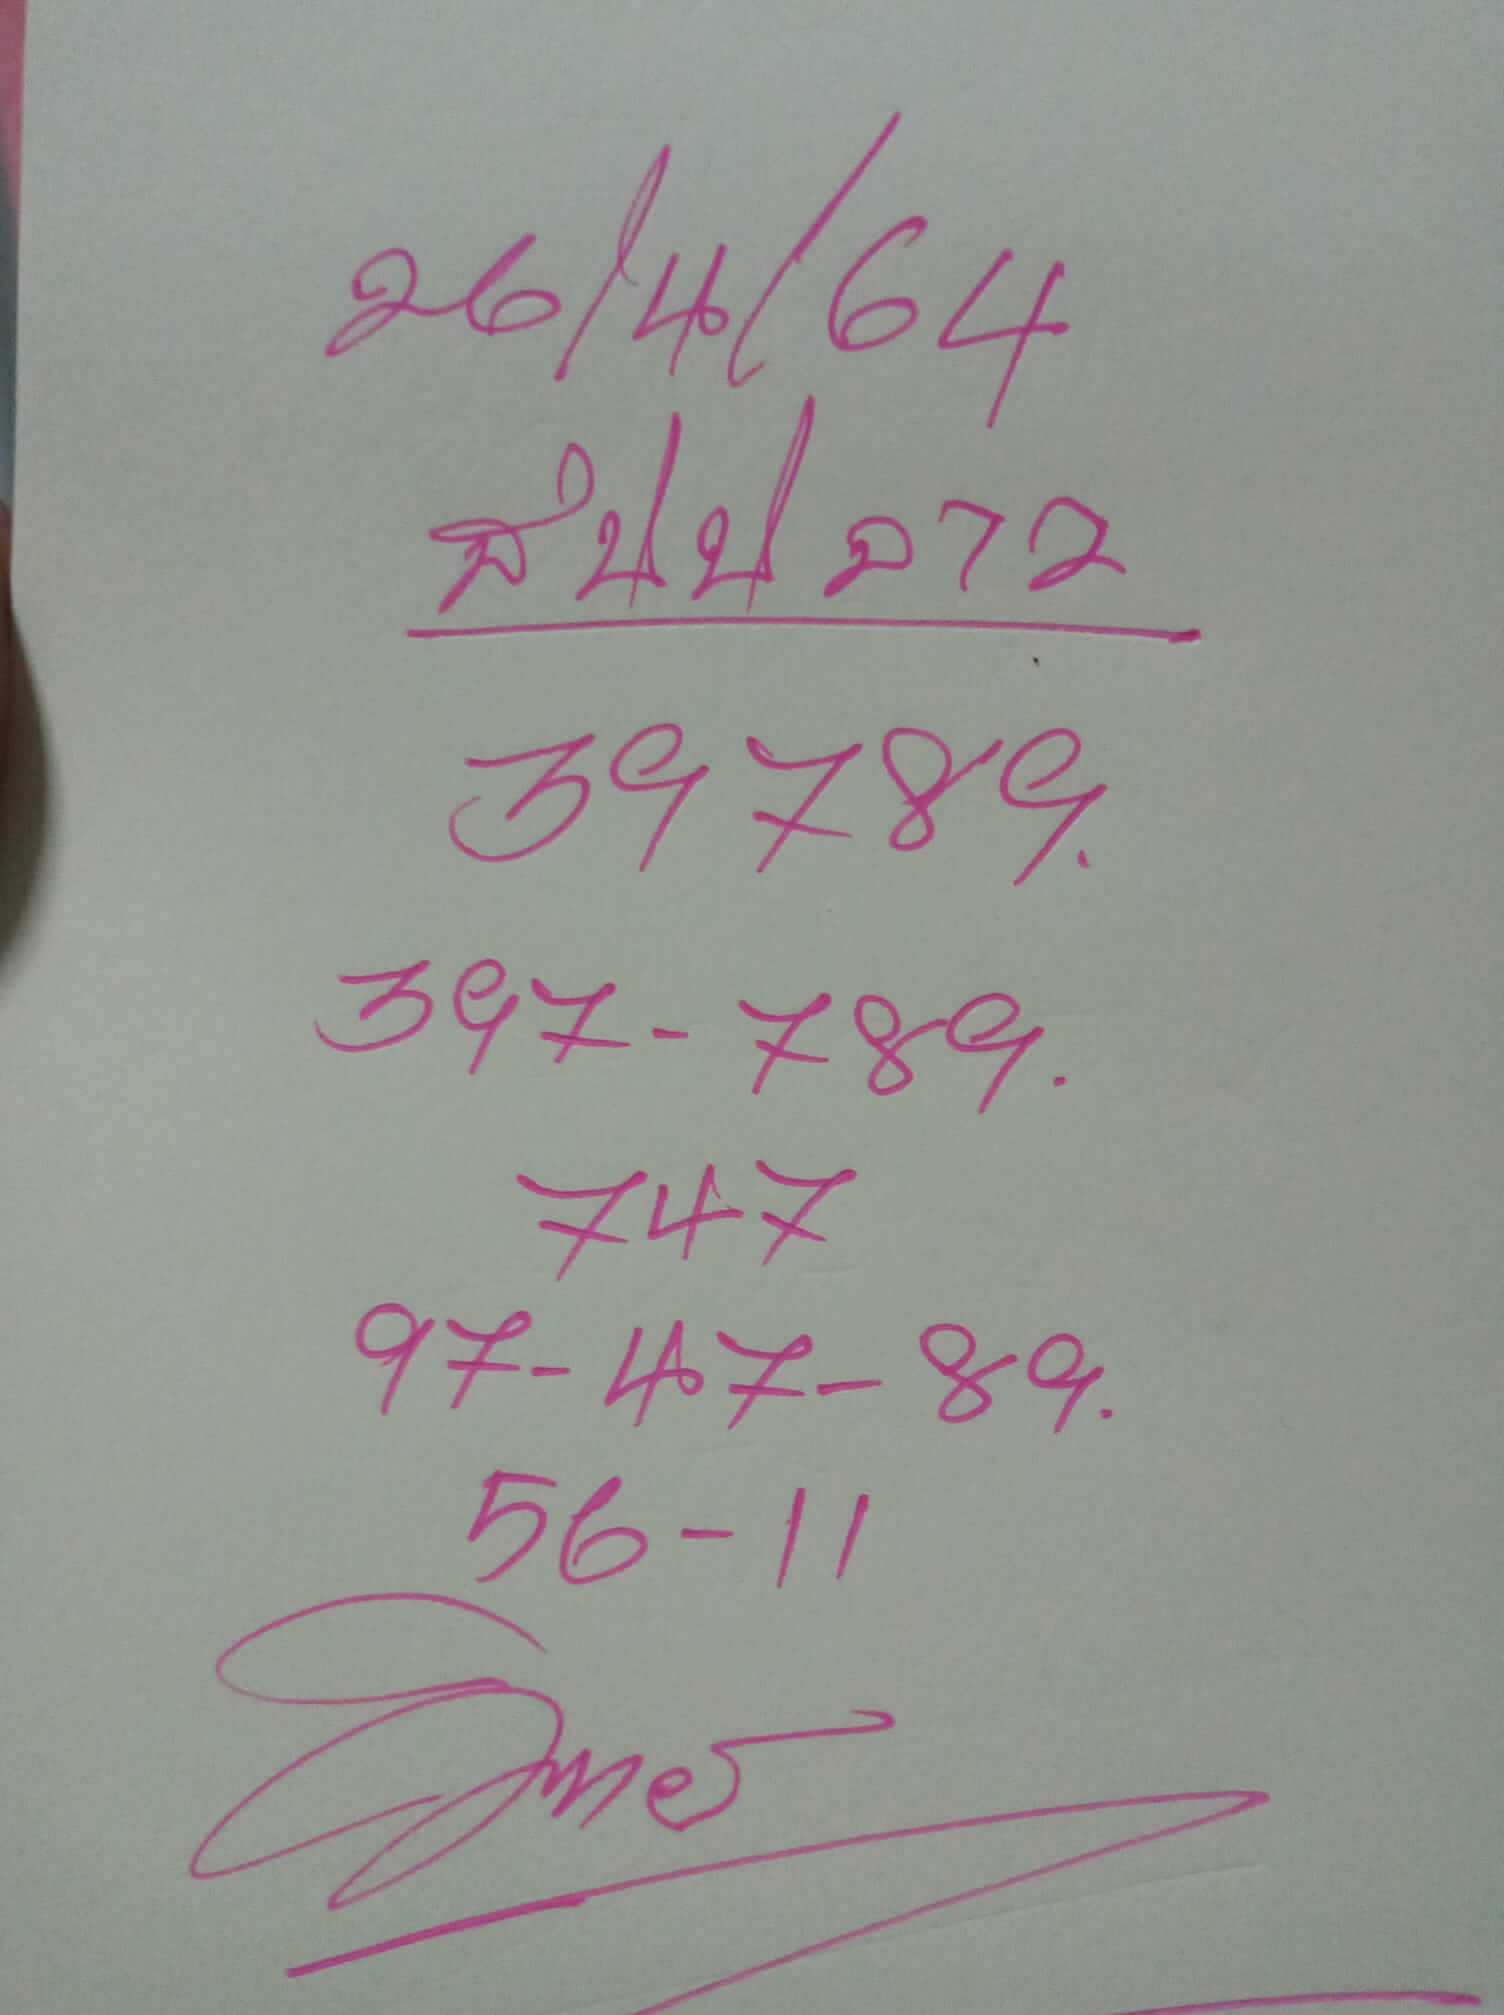 26/4/64
สปป ลาว
39789.
397-789.
747
97-47-89.
56-11